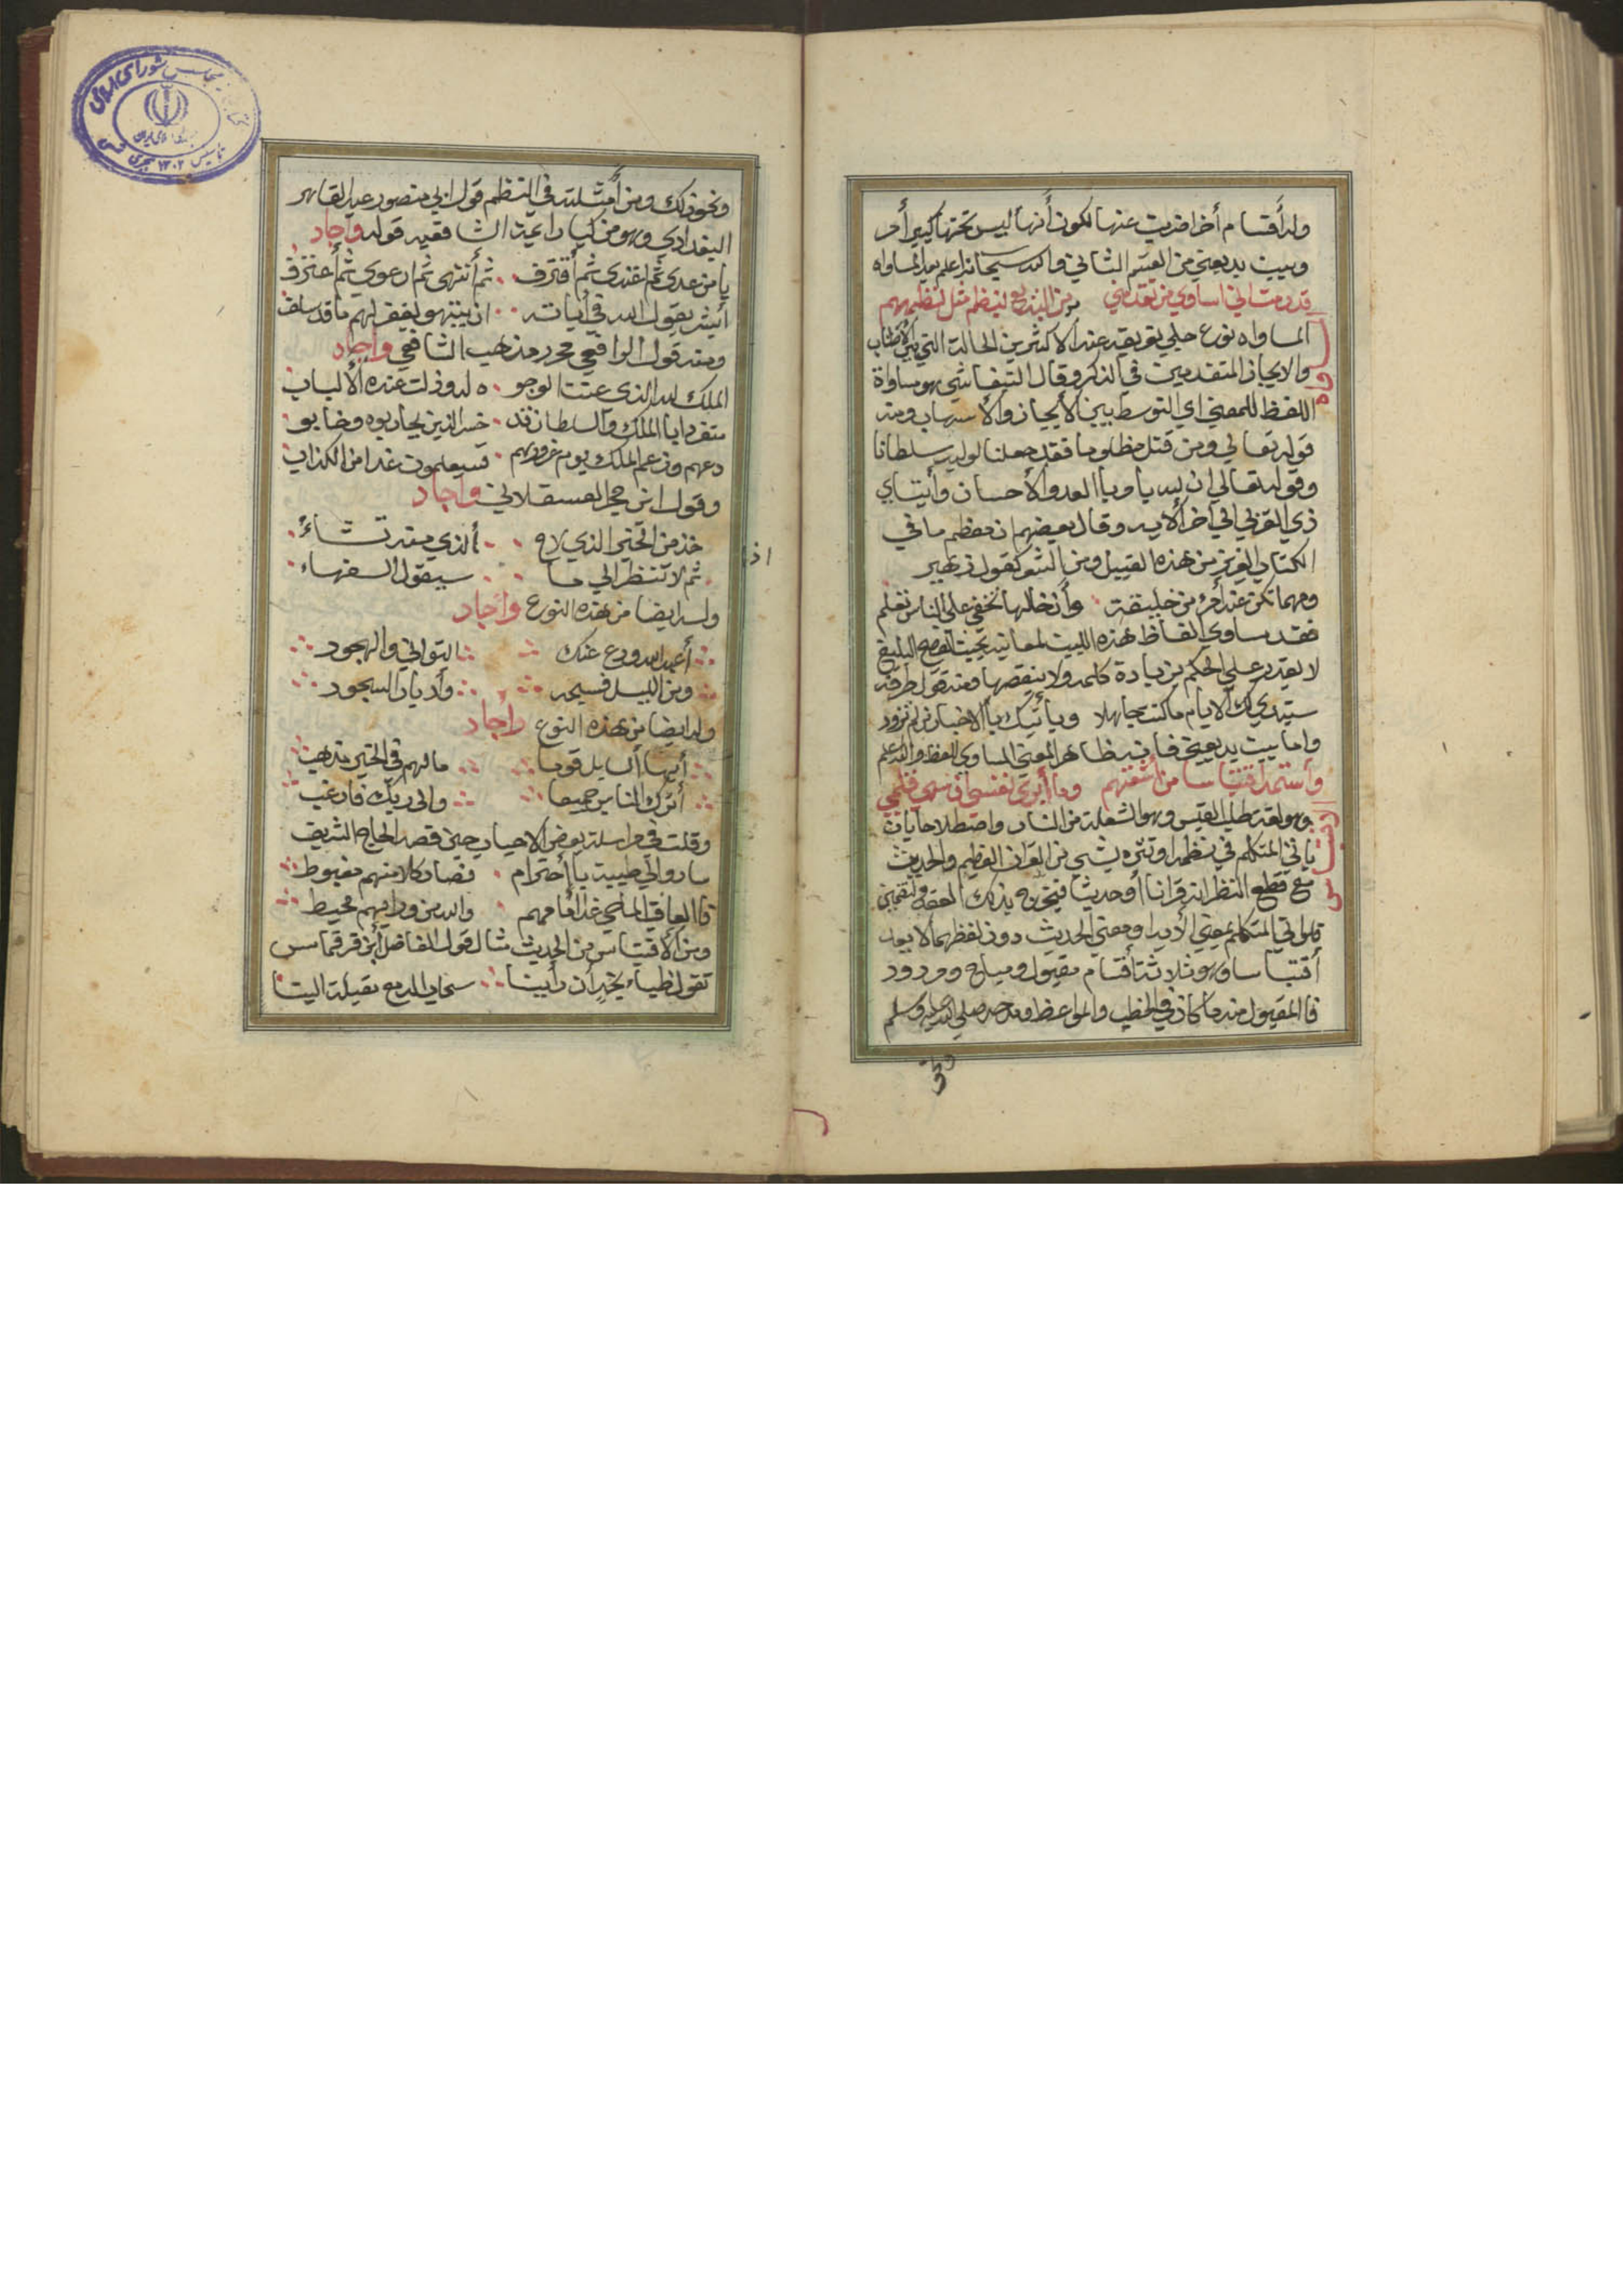 وله أقسام أخر اضربت عنها لكون أنها ليس تحتها كبير أمر
وبيت بديعيتي من القسم الثاني والله سبحانه اعلم بعد المساواه
قد رمت اني اساوي من تقدمني بمن البديع لينظم مثل نظمهم
المساواه
المساواه نوع جلي تعريفه عند الاكثرين الحالة التي بين الأطناب
والايجاز المتقدمين في الذكر وقال التيفاشي هو مساواة
اللفظ للمعنى اي التوسط بين الأيجاز والأسهاب ومنه
قوله تعالي ومن قتل مظلوما فقد جعلنا لوليه سلطانا
وقوله تعالي ان الله يا وبا العدو الأحسان وأيتاي
ذي القربي الي أخر ألايه وقال بعضهم ان معظم ما في
الكتاب العزيز من هذه القبيل ومن الشعر كقول زهير
ومهما تكن عند أمرء من خليقة وأن خالها تخفي علي الناس تعلم
فقد ساوي الفاظ هذه البيت لمعانيه بحيث الفصح البليغ
لا يقدر علي الحكم بزيادة كلمه ولا بنقصها ومنه قول طرفه
ستبدي لك ألايام ما كنت جاهلا ويأتيك بألاخبار من لم تزود
واما بيت بديعيتي فانه ظاهر المعنى المساوي للفظ والله اعلم
وأستمد اقتباسا من أشعتهم وما أبري نفسي أن سهي قلمي
الاقتباس
وهو لغة طلب القبس وهو الشعلة من النار واصطلاحا بان
يأتي المتكلم في نظمه او نثره بشي من القران العظيم والحديث
مع قطع النظر انه قرانا أو حديثا فيخرج بذلك العقد والتضمين
فلو اتي المتكلم بمعني الأيه او معني الحديث دون لفظهما لا يعد
أقتباسا وهو ثلاثة أقسام مقبول ومباح ومردود
فالمقبول منه ما كان في الخطب والمواعظ ومدحه صلي الله عليه وسلم
ونحو
ونحو ذلك ومن أمثلته في النظم قول ابي منصور عبد القاهر
البغدادي وهو من كبار ايمة الشافعيه قوله واجاد
يا من عدي ثم اعتدي ثم أقترف ثم أنتهي ثم ارعوي ثم أعترف
أبشر بقول الله في أياته ان ينتهو يغفر لهم ما قد سلف
ومنه قول الرافعي محرر مذهب الشافعي واجاد
الملك لله الذي عنت الوجو ه له وذلت عنده الألباب
متفردا بالملك والسلطان قد خسر الذين يحاربوه وخابو
دعهم وزعم الملك يوم غرورهم فسيعلمون غدا من الكذاب
وقول ابن حجر العسقلاني واجاد
خذ من الخير الذي لاح ألذي منه تشاء
ثم لا تنظر الي ما سيقول السفهاء
وله ايضا من هذه النوع وأجاد
أعبد الله ودع عنك التواني والهجود
ومن الليل فسبحه وأدبار السجود
وله ايضا من هذه النوع وأجاد
أيها السايل قوما ما لهم في الخير مذهب
أترك الناس جميعا والي ربك فارغب
وقلت في مراسلة بعض الاحباب حين قصد الحاج الشريف
سارو الي طيبة بأحترام فصار كلا منهم مغبوط
والله من ورايهم محيط
ومن ألاقتباس من الحديث مثاله قول الفاضل أبن قرقماس